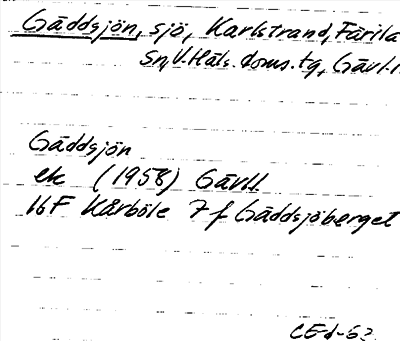 Gäddsjön, sjö, Karlstrand, Färila
Sn, V. Häls. doms. tg, Gävl.
Gäddsjön
ek (1958) Gävl.
16F Kårböle 7 f Gäddsjöberget
CE-d-62